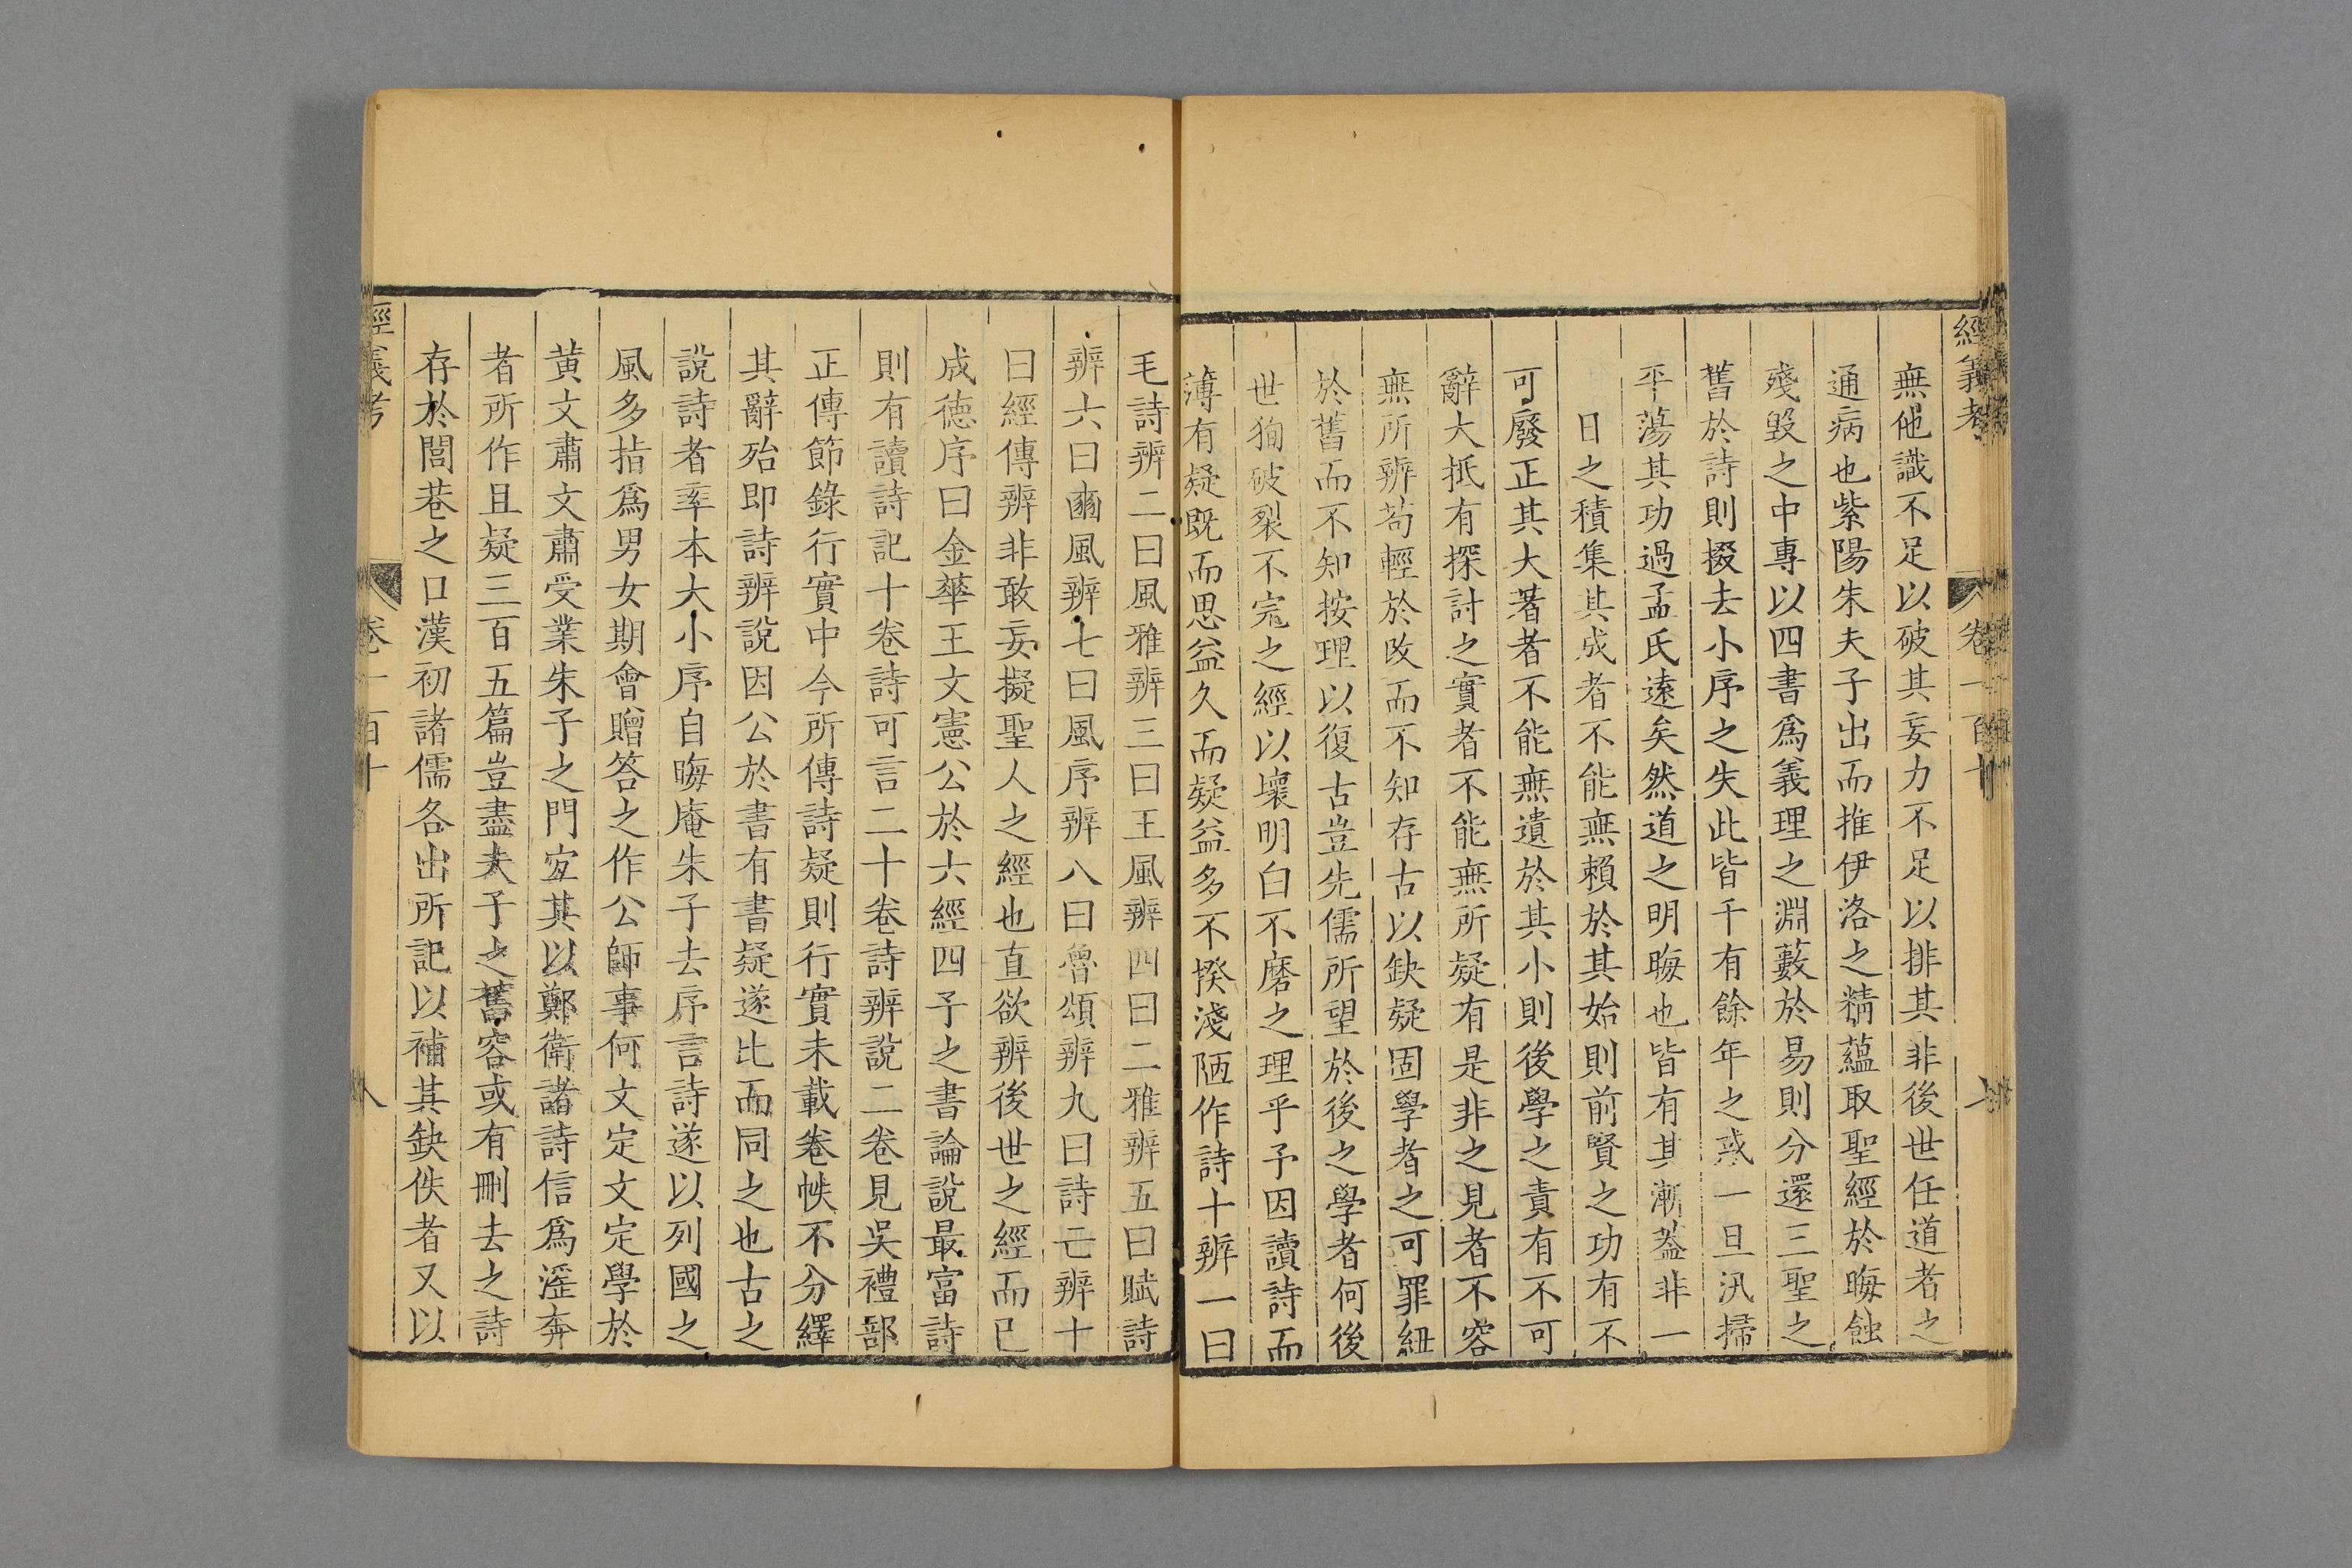 經義考 卷一百十
無他識不足以破其妄力不足以排其非後世任道者之
通病也紫陽朱夫子出而推伊洛之精蘊取聖經於晦蝕
殘毀之中專以四書爲義理之淵藪於易則分還三聖之
舊於詩則掇去小序之失此皆千有餘年之惑一旦汛掃
平蕩其功過孟氏遠矣然道之明晦也皆有其漸蓋非一
日之積集其成者不能無賴於其始則前賢之功有不
可廢正其大著者不能無遺於其小則後學之責有不可
辭大抵有探討之實者不能無所疑有是非之見者不容
無所辨苟輕於改而不知存古以缺疑固學者之可罪紐
於舊而不知按理以復古豈先儒所望於後之學者何後
世狥破裂不完之經以壞明白不磨之理乎予因讀詩而
薄有疑既而思益久而疑益多不揆淺陋作詩十辨一曰
毛詩辨二曰風雅辨三曰王風辨四曰二雅辨五曰賦詩
辨六曰豳風辨七曰風序辨八曰魯頌辨九曰詩亡辨十
曰經傳辨非敢妄擬聖人之經也直欲辨後世之經而已
成德序曰金華王文憲公於六經四子之書論說最富詩
則有讀詩記十卷詩可言二十卷詩辨說二卷見吳禮部
正傳節錄行實中今所傳詩疑則行實未載卷帙不分繹
其辭殆即詩辨說因公於書有書疑遂比而同之也古之
說詩者率本大小序自晦庵朱子去序言詩遂以列國之
風多指爲男女期會贈答之作公師事何文定文定學於
黃文肅文肅受業朱子之門宜其以鄭衛諸詩信爲淫奔
者所作且疑三百五篇豈盡夫子之舊容或有刪去之詩
存於閭巷之口漢初諸儒各出所記以補其缺佚者又以
經義考 卷一百十 八